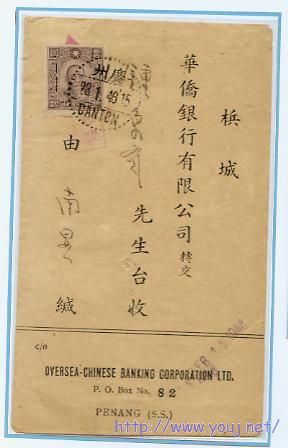 檳城
華僑銀行有限公司 轉交
先生台收
由南 緘
廣州
28.1.48.15
CANTON
FEB 15 1948
c/o
OVERSEA-CHINESE BANKING CORPORATION LTD.
P. O. Box No. 82
PENANG (S.S.)
http://www.youj.net/